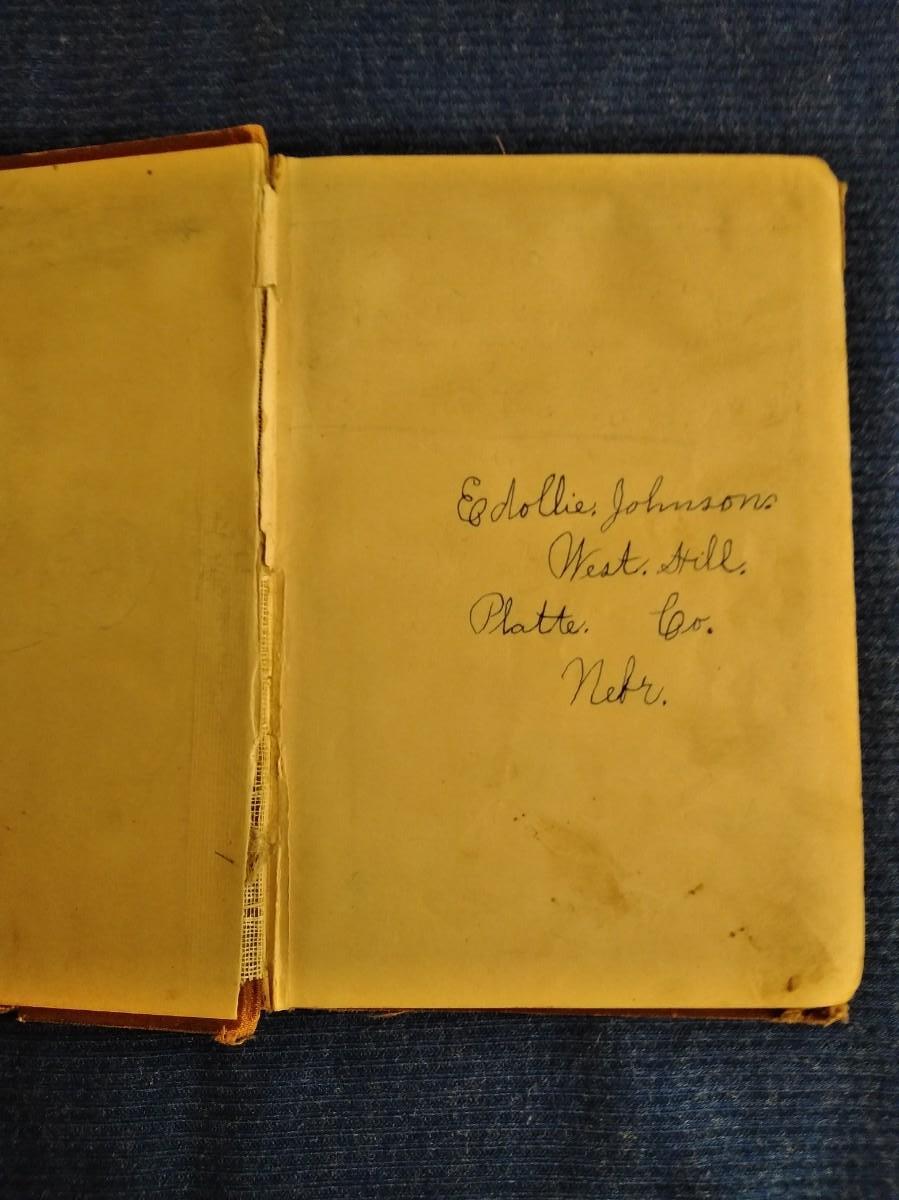 Edollie. Johnson.
West. Hill.
Platte. Co.
Nebr.